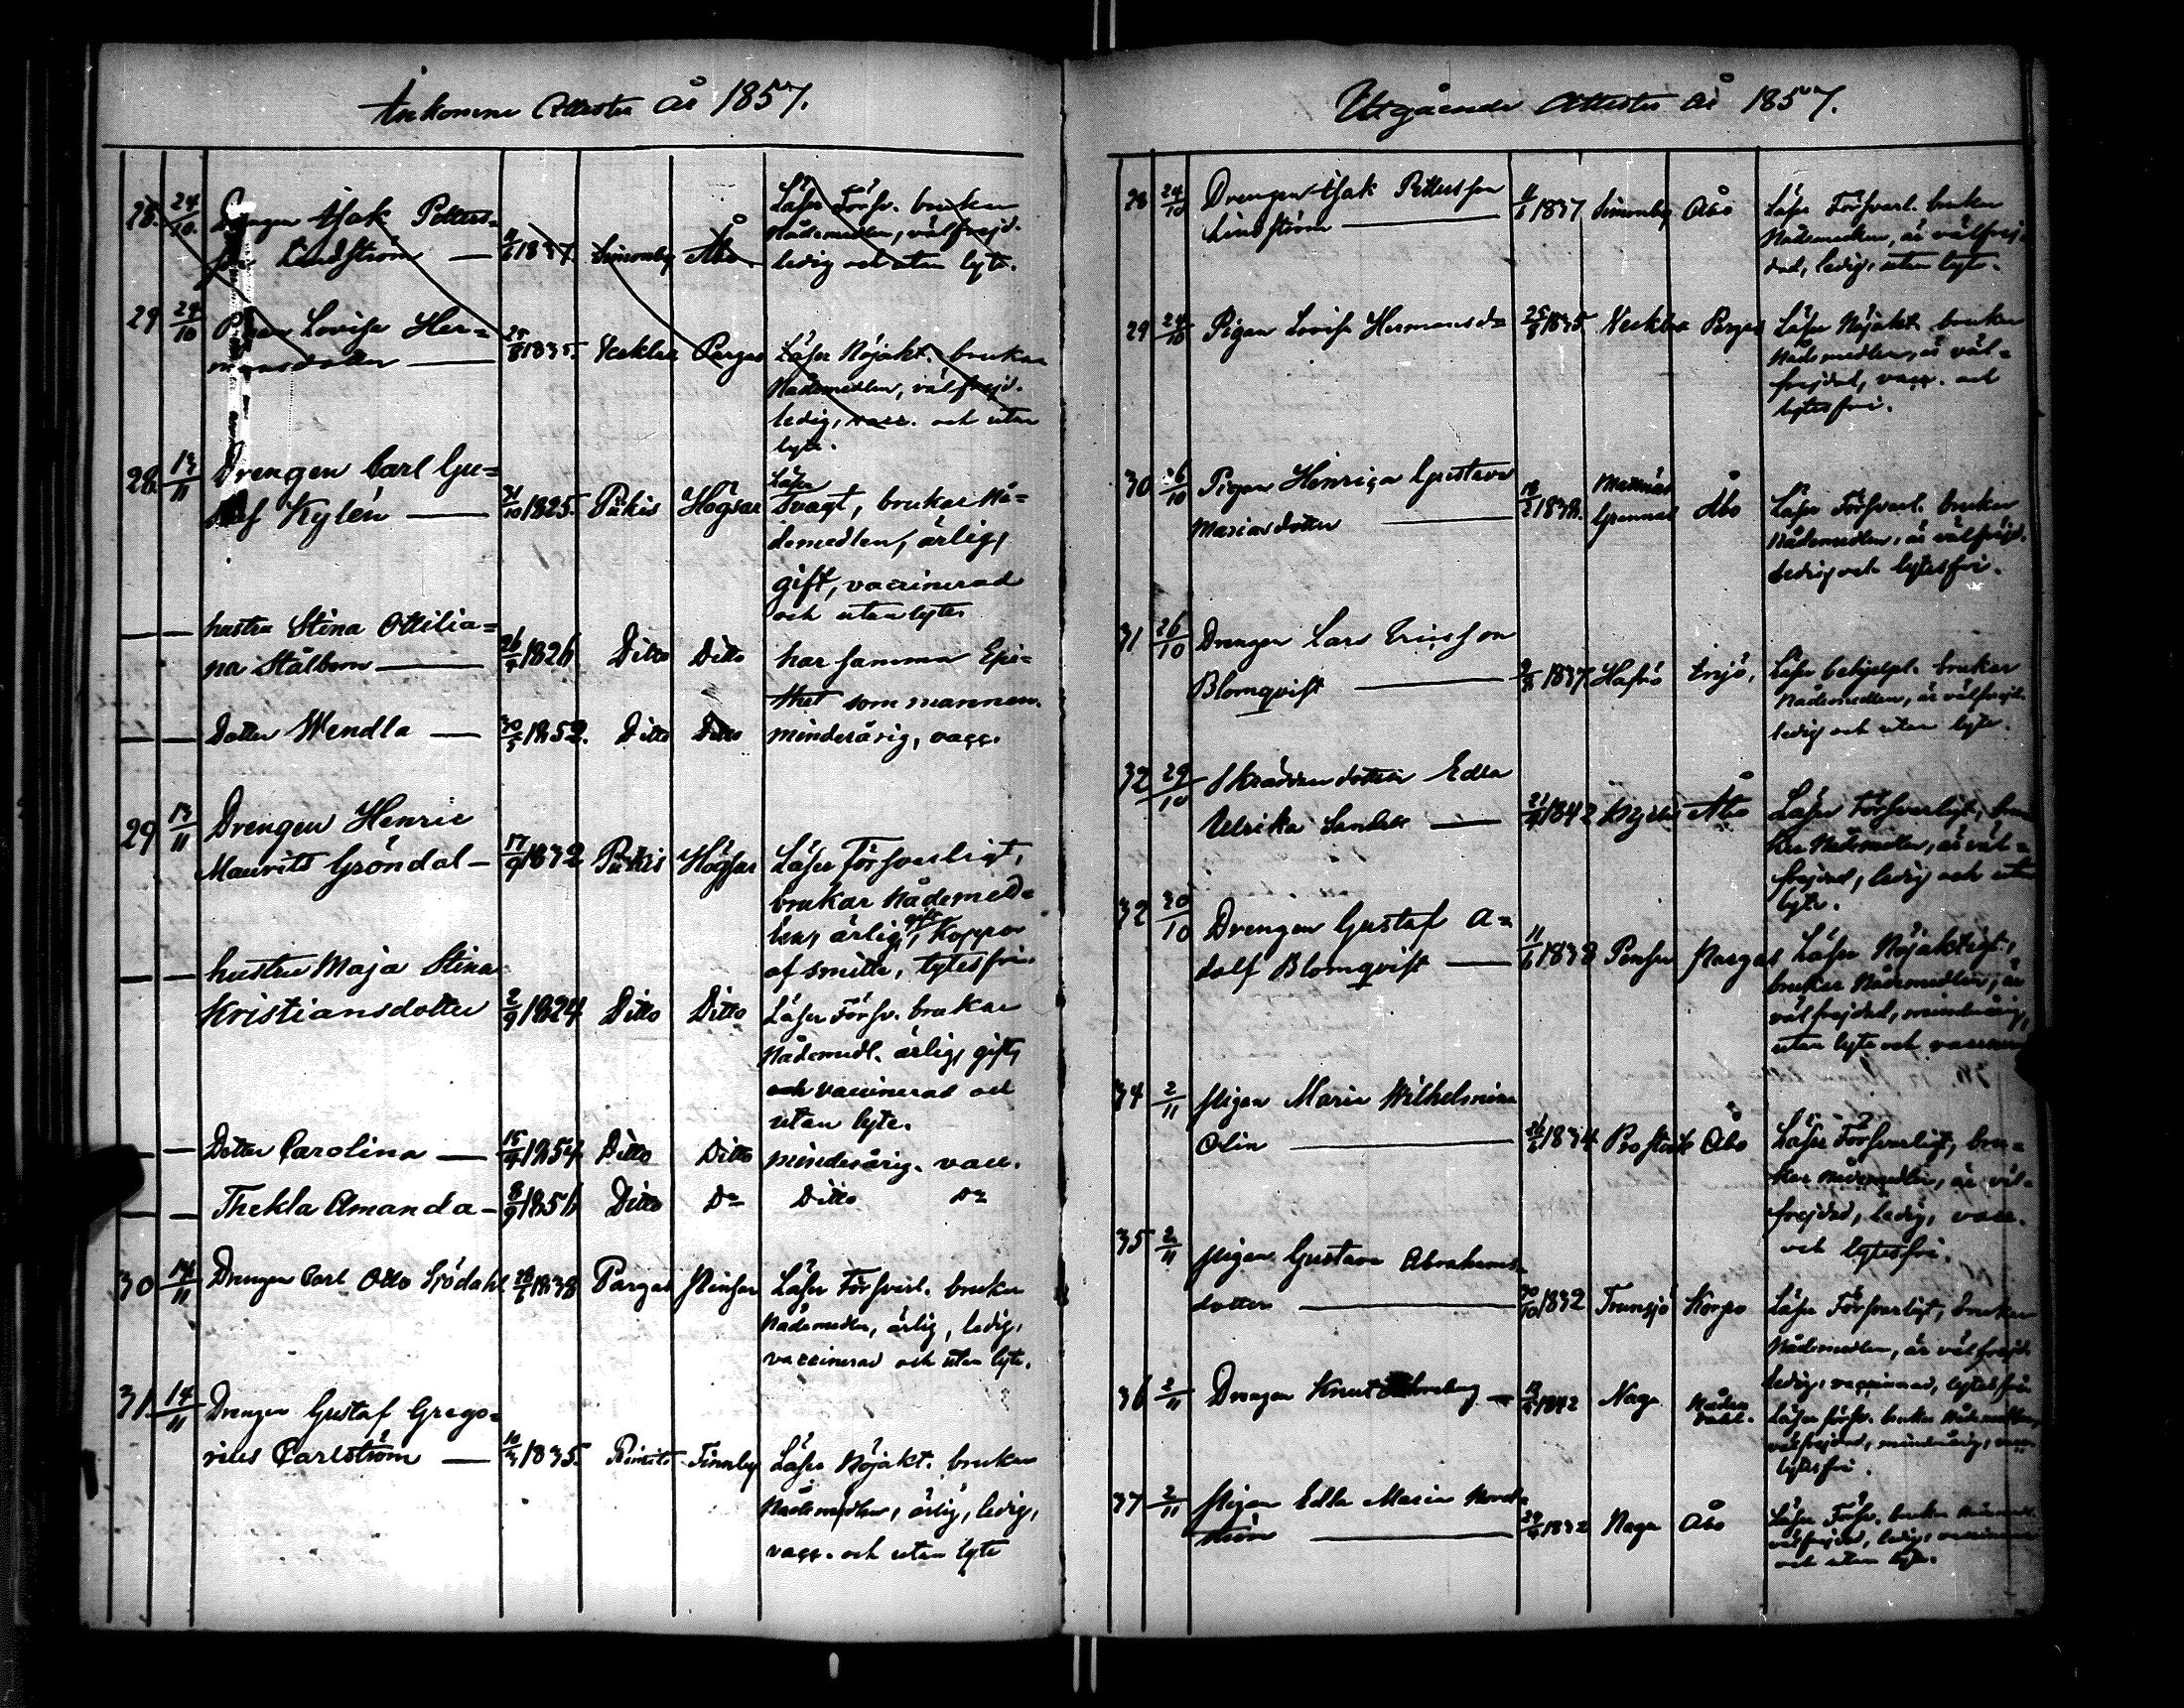 Ankomne Attester år 1857.
28. 24/10. Drengen Isak Petters-
son Lindström — 11/6 1837 Simonby Åbo.
Läser Försv. brukar
Nådemedlen, välfrejd.
ledig och utan lyte.
29 24/10 Pigan Lovisa Her-
mansdotter — 25/8 1835. Veckla Pargas
Läser Nöjakt. brukar
Nådemedlen, välfrejd.
ledig, vacc. och utan
lyte.
28. 13/11 Drengen Carl Gu-
staf Kylén — 31/10 1825. Pikis Högsar
Läser
Svagt, brukar Nå-
demedlen, ärlig,
gift, vaccinerad
och utan lyte.
— — hustru Stina Ottilia-
na Stålbom — 1826 Ditto Ditto
har samma Epi-
thet som mannen.
— — Dotter Wendla — 30/5 1852. Ditto Ditto minderårig, vacc.
29 13/11 Drengen Henric
Maurits Gröndal — 17/9 1832 Pikis Högsar
Läser Försvarligt,
brukar Nådemed-
len, ärlig, gift, Koppor
af smitta, lytesfri.
— — hustru Maja Stina
Kristiansdotter 2/9 1824 Ditto Ditto
Läser Försv. brukar
Nådemedl. ärlig, gift,
och vaccinerad och
utan lyte.
— — Dotter Carolina — 15/4 1854 Ditto Ditto minderårig. vacc.
— — Thekla Amanda — 8/9 1856 Ditto Do Ditto Do
30 14/11 Drengen Carl Otto Sjödahl 1838 Pargas Pensar
Läser Försvarl. brukar
Nådemedlen, ärlig, ledig,
vaccinerad och utan lyte.
31. 14/11 Drengen Gustaf Grego-
rius Carlström — 10/3 1835. Rimito Finnby
Läser Nöjakt. brukar
Nådemedlen, ärlig, ledig,
vacc. och utan lyte
Utgående Attester år 1857.
28 24/10 Drengen Isak Pettersson
Lindström — 11/6 1837 Simonby Åbo
Läser Försvarl. brukar
Nådemedlen, är välfrej-
dad, ledig, utan lyte.
29 24/10 Pigan Lovisa Hermansdr 25/8 1835 Veckla Pargas
Läser Nöjakt. brukar
Nådemedlen, är väl-
frejdad, vacc. och
lytesfri.
30 26/10 Pigan Henrica Gustava
Mariasdotter — 1838. Grannas Åbo
Läser Försvarl. brukar
Nådemedlen, är välfrejd.
ledig och lytesfri.
31 26/10 Drengen Lars Ericsson
Blomqvist — 1837. Hafsö Ersjö.
Läser behjelpl. brukar
Nådemedlen, är välfrejd.
ledig och utan lyte.
32 29/10 Skräddardottern Edla
Ulrika Sandell — 1842 Åbo
Läser Försvarligt, bru-
kar Nådemedlen, är väl-
frejdad, ledig och utan
lyte.
32 30/10 Drengen Gustaf A-
dolf Blomqvist — 11/6 1838 Pensar Pargas
Läser Nöjaktigt,
brukar Nådemedlen, är
välfrejdad, minderårig,
utan lyte och vaccinerad
34 2/11 Pigan Maria Wilhelmina
Olin — 1834 Prostvik Åbo
Läser Försvarligt, bru-
kar Nådemedlen, är väl-
frejdad, ledig, vacc.
och lytesfri.
35 2/11 Pigan Gustava Abrahams-
dotter — 30/10 1832 Trunsjö Korpo
Läser Försvarligt, brukar
Nådemedlen, är välfrejd.
ledig, vaccinerad, lytesfri.
36 2/11 Drengen Knut — 1842 Nagu Nåden-
dahl.
Läser försv. brukar Nådemedlen,
välfrejdad, minderårig, vacc.
lytesfri.
37 2/11 Pigan Edla Maria Nord-
ström — 1832 Nagu Åbo
Läser Försv. brukar Nådemedl.
välfrejdad, ledig, vaccinerad
och utan lyte.